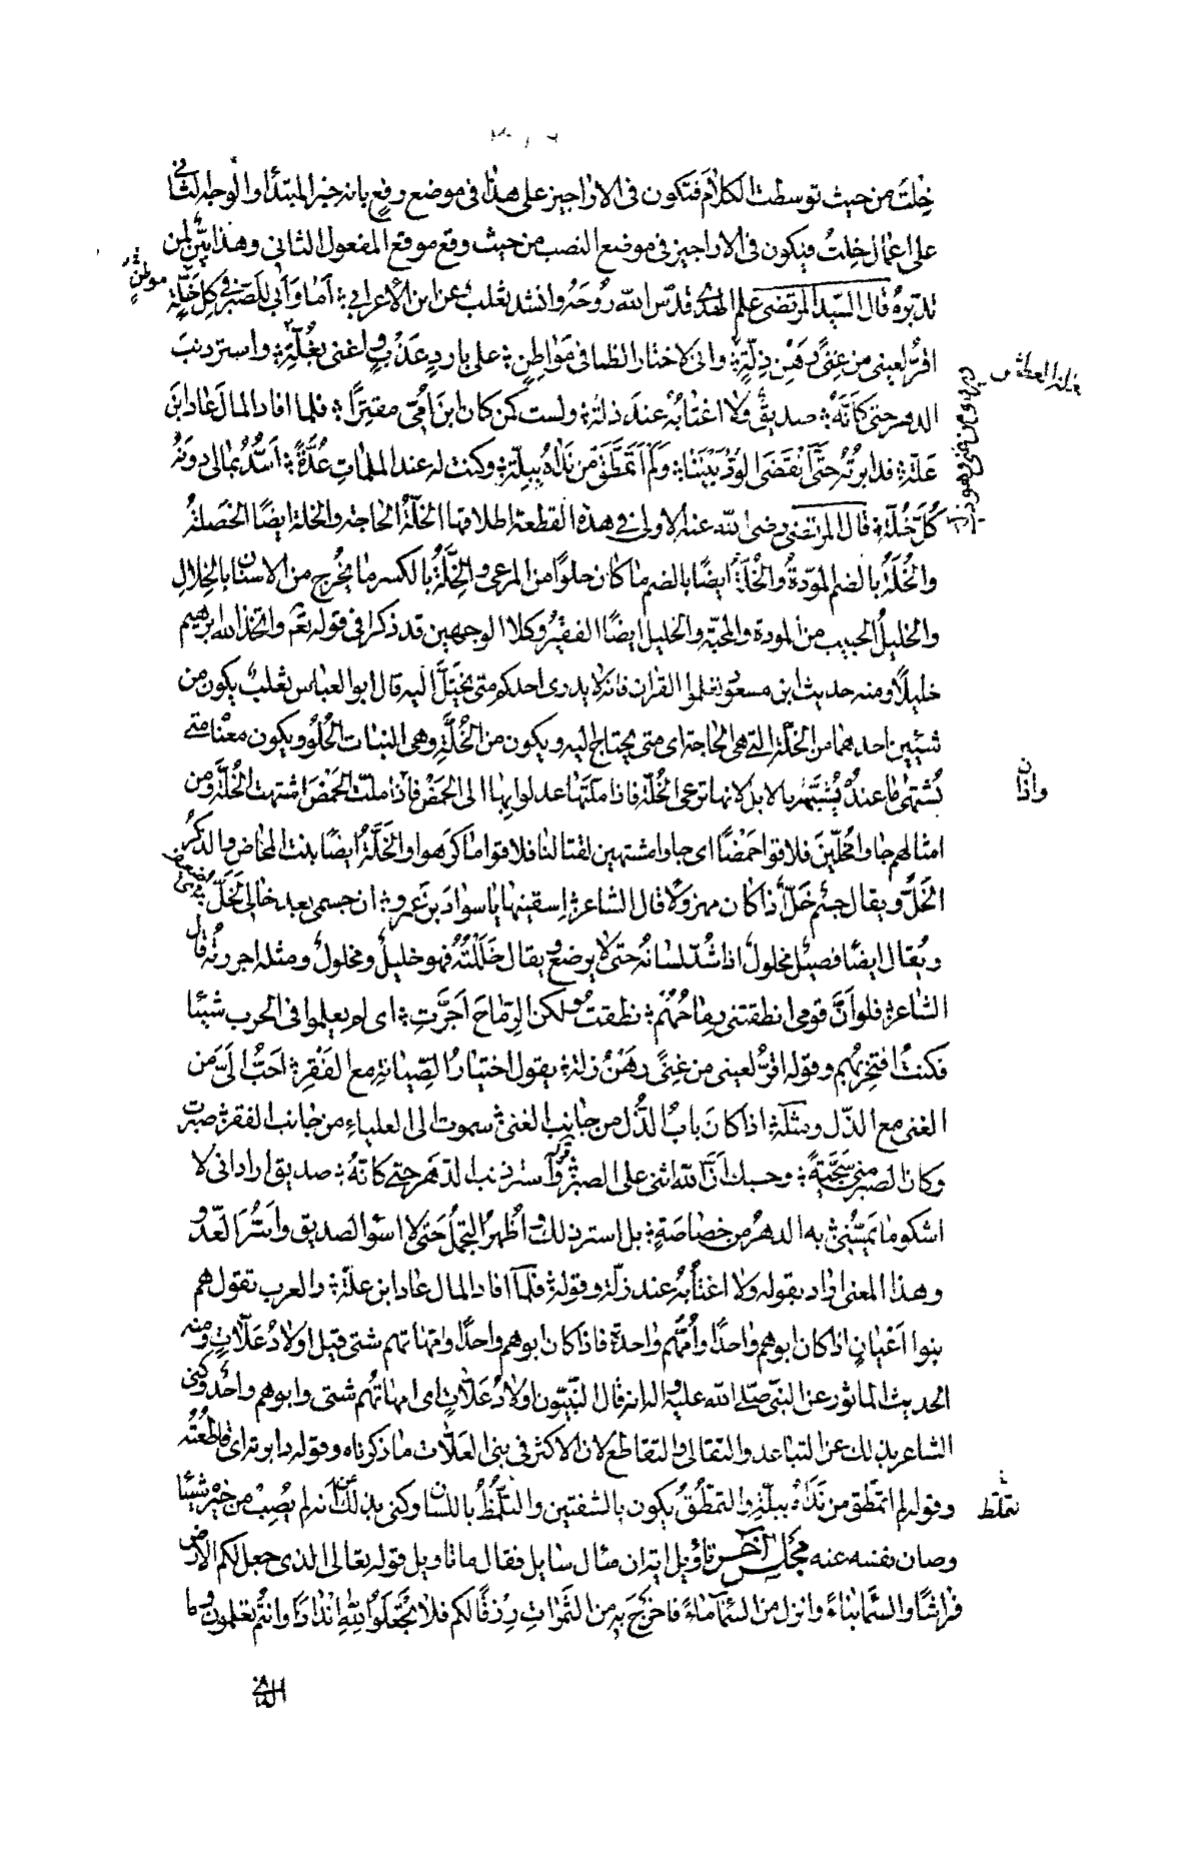 خِلتَ من حيث توسطت الكلام فتكون فى الاراجيز على هذا فى موضع رفع بانه خبر المبتدا والوجه الثانى
على اعمال خِلتُ فيكون فى الاراجيز فى موضع النصب من حيث وقع موقع المفعول الثانى وهذا بيّن لمن
تدبّره قال السيّد المرتضى علم الهدى قدّس الله روُحَهُ وانشد ثعلب عن ابن الأعرابى ؛ أما وَأبى للَصَبْرُ فى كلّ خَلّةٍ
موطنٍ
اقرُّ لعينى من غِنىً رَهْنِ ذِلّةٍ ؛ وانى لاختار الظما فى مَوَاطِنٍ ؛ على باردٍ عَذْبٍ واغنى بغُلّةٍ ؛ واستر ذنبَ
الدهر حتى كانّه ؛ صديقٌ ولا اغتابهُ عندَ ذلّة ؛ ولست كمن كان ابن امّى مقتِرًا ؛ فلما افاد المال عاد ابنَ
عَلّة ؛ فدابرتُهُ حتّى انقَضَى الودُّ بَيْنَنا ؛ وَلَم اَتَمَطَّق من نَداهُ ببِلّة ؛ وكنت له عند الملمات عُدَّةً ؛ اَسُدُّ بمالى دونهُ
كُلّ خُلّة ؛ قال المرتضى رضى الله عنه الاولى فى هذه القطعة اطلاقها الخَلّةُ الحاجة والخلة ايضًا الخصلةُ
والخُلّةُ بالضم المودّةُ والخُلّةُ ايضًا بالضم ما كان حلوًا من المرعى والخِلّةُ بالكسر ما يخرج من الاسنان بالخلال
والخليلُ الحبيب من المودة والمحبّة والخليل ايضًا الفقيرُ وكلا الوجهين قد ذكرا فى قوله تعٰ واتّخذ الله ابرهيم
خليلًا ومنه حديث ابن مسعود تعلموا القران فانه لا يدرى احدكم متى يختَلُّ اليه قال ابو العباس ثعلب يكون من
شيئين احدهما من الخلّة التى هى الحاجة اى متى يحتاج اليه ويكون من الخُلّةِ وهى النبات الحُلو ويكون معناه متى
يُشتهى ما عندهُ يُشبّهه بالابل لانها ترعى الخُلّة فاذا ملّتها عدلوا بها الى الحَمْض فاذا ملّت الحَمْضَ اشتهت الخُلّةَ ومن
امثالهم جاوا مُخلّينَ فلاقوا حَمْضًا اى جاوا مشتهين لقتالنا فلاقوا ما كرهوا والخَلّةُ ايضًا بنت المخاض والذكرُ
الخَلُّ ويقال جسمٌ خَلٌّ اذا كان مهزولًا قال الشاعر ؛ اسقِنيها يا سوادَ بن عَمرو ؛ ان جسمى بعد خالى لخَلُّ
ويُقال ايضًا فصيل مخلولٌ اذا شُدّ لسانهُ حتى لا يرضع ويقال خَلَلْتُهُ فهو خليلٌ ومخلولٌ ومثله اجررتُه قال
الشاعر ؛ فلو اَنَّ قومى انطقتنى رِماحُهُم ؛ نطقتُ ولكن الرِماحَ اَجَرَّتِ ؛ اى لم يعملوا فى الحرب شيئًا
فكنتُ افتخِرُ بهم وقوله اقرُّ لعينى من غِنىً رَهْنُ ذلة ؛ يقول اختيارُ الصِّيانةِ مع الفَقْرِ ؛ احَبُّ الىَّ من
الغنى مع الذّل ومثله ؛ اذا كانَ بابُ الذُّل من جانبِ الغنى ؛ سموت الى العلياءِ من جانب الفقر ؛ صبرت
وكان الصبرُ منى سَجِيّةً ؛ وحسبك اَنّ الله اثنى على الصبر ؛ وقوله واستر ذنب الدّهر حتى كانّهُ ؛ صديق اراد انى لا
اشكو ما يَمَسُّنى به الدهرُ من خصاصةٍ ؛ بل استر ذلك واُظهرُ التجمّلَ حَتى لا اسوُ الصديق واَسُرَّ العدّو
وهذا المعنى اراد بقوله ولا اغتابهُ عند زلّة وقوله ؛ فلمّا افاد المال عاد ابن علّة ؛ والعرب تقول هم
بنوا اَعْيانٍ اذا كان ابوهم واحدًا واُمّهم واحدة فاذا كان ابوهم واحدًا وامّهاتهم شتى قيل اولادُ عَلّاتٍ ومنه
الحديث الماثور عن النبى صلّى الله عليه واله انه قال النبيّون اولادُ عَلّاتٍ اى امهاتُهم شتى وابوهم واحدٌ وكنى
الشاعر بذلك عن التباعد والتقالى والتقاطع لان الاكثر فى بنى العَلّات ما ذكرناه وقوله دابرته اى قاطعتُه
وقوله لم اتمَطّق من نَدَاهُ ببِلّةٍ والتمطُّقُ يكون بالشفتين والتلمُّظُ باللسان وكنى بذلك عن انه لم يُصِبْ من خيرهِ شيئًا
وصان نفسه عنه مجلس آخر تاويل اية ان سال سايل فقال ما تاويل قوله تعالى الذى جعل لكم الارض
فِراشًا والسَّمآ بناءً وانزل من السَّمآ ماءً فاخرَجَ به من الثمراتِ رِزقًا لكم فلا تجعَلوُا لله اندادًا وانتُم تعلمون
واذان